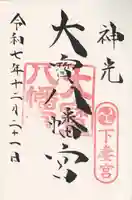 神光
大寳八幡宮
下妻宮
令和七年十二月二十一日